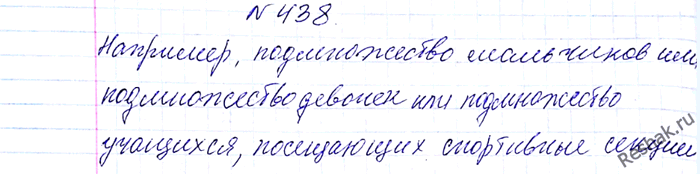 №438
Например, подмножество мальчиков или
подмножество девочек или подмножество
учащихся, посещающих спортивные секции
Reshak.ru